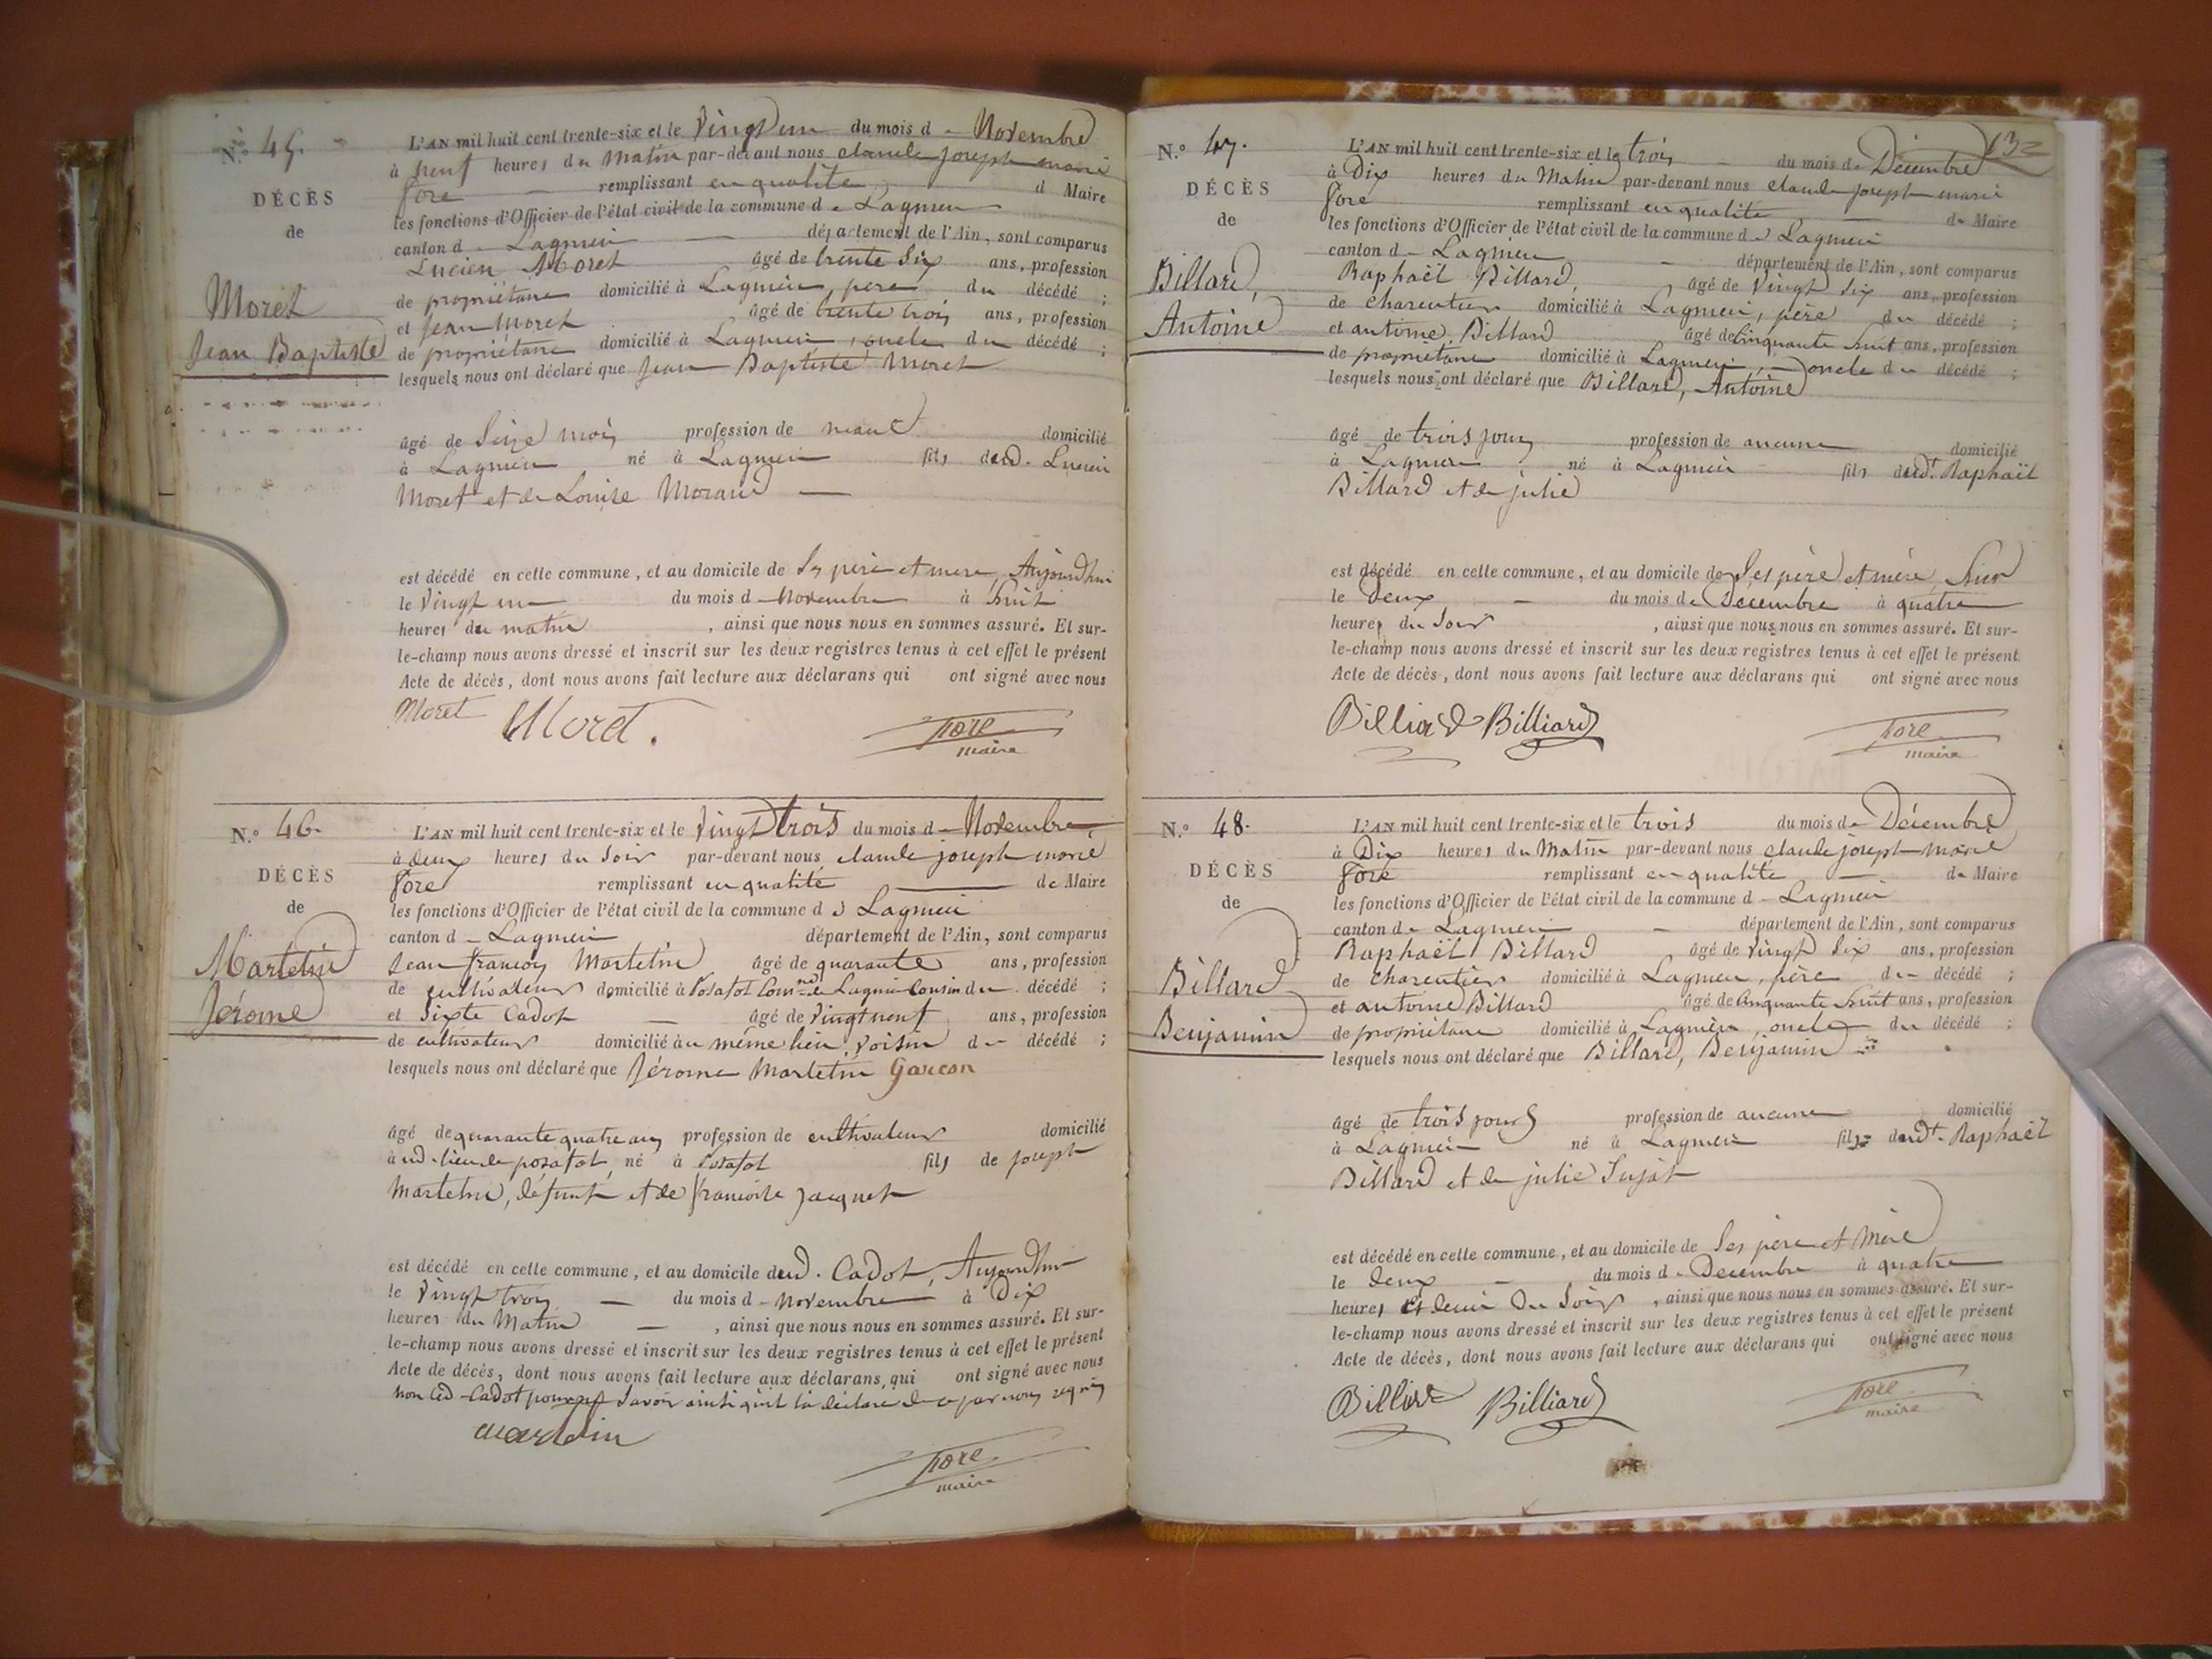 N.° 45.
DÉCÈS
de
Moret
Jean Baptiste
L'AN mil huit cent trente-six et le Vingt un du mois d e Novembre
à neuf heures du matin par-devant nous claude joseph marie
fore remplissant en qualité d Maire
les fonctions d'Officier de l'état civil de la commune d e Lagnieu
canton d e Lagnieu département de l'Ain, sont comparus
Lucien Moret âgé de trente Six ans, profession
de propriétaire domicilié à Lagnieu, père du décédé ;
et Jean Moret âgé de trente trois ans, profession
de propriétaire domicilié à Lagnieu, oncle du décédé ;
lesquels nous ont déclaré que Jean Baptiste Moret
âgé de Seize mois profession de néant domicilié
à Lagnieu né à Lagnieu fils dud. Lucien
Moret et de Louise Morand
est décédé en cette commune, et au domicile de Ses père et mere Aujourdhui
le Vingt un du mois d e Novembre à huit
heures du matin , ainsi que nous nous en sommes assuré. Et sur-
le-champ nous avons dressé et inscrit sur les deux registres tenus à cet effet le présent
Acte de décès, dont nous avons fait lecture aux déclarans qui ont signé avec nous
Moret Moret.
fore
maire
N.° 46.
DÉCÈS
de
Martelin
Jérome
L'AN mil huit cent trente-six et le Vingt trois du mois d e Novembre
à deux heures du Soir par-devant nous claude joseph marie
fore remplissant en qualité de Maire
les fonctions d'Officier de l'état civil de la commune d e Lagnieu
canton d e Lagnieu département de l'Ain, sont comparus
Jean françois Martelin âgé de quarante ans, profession
de cultivateur domicilié à Posafol Comne de Lagnieu Cousin du décédé ;
et Sixte Cadot âgé de Vingt neuf ans, profession
de cultivateur domicilié au même lieu, Voisin du décédé ;
lesquels nous ont déclaré que Jérome Martelin Garcon
âgé de quarante quatre ans profession de cultivateur domicilié
à ud. lieu de posafol, né à Posafol fils de joseph
Martelin, défunt et de françoise Jacquet
est décédé en cette commune, et au domicile dud. Cadot, Aujourdhui
le Vingt trois du mois d e Novembre à Dix
heures du Matin , ainsi que nous nous en sommes assuré. Et sur-
le-champ nous avons dressé et inscrit sur les deux registres tenus à cet effet le présent
Acte de décès, dont nous avons fait lecture aux déclarans, qui ont signé avec nous
non led. Cadot pour ne savoir ainsi qu'il l'a déclaré de ce par nous requis
martelin
fore
maire
132
N.° 47.
DÉCÈS
de
Billard,
Antoine
L'AN mil huit cent trente-six et le trois du mois de Décembre
à Dix heures du Matin par-devant nous claude joseph marie
fore remplissant en qualité de Maire
les fonctions d'Officier de l'état civil de la commune d e Lagnieu
canton d e Lagnieu département de l'Ain, sont comparus
Raphaël Billard, âgé de Vingt Six ans, profession
de Charcutier domicilié à Lagnieu, père du décédé ;
et antoine Billard âgé de Cinquante huit ans, profession
de propriétaire domicilié à Lagnieu, oncle du décédé ;
lesquels nous ont déclaré que Billard, Antoine
âgé de trois jours profession de aucune domicilié
à Lagnieu né à Lagnieu fils dudt. Raphaël
Billard et de julie
est décédé en cette commune, et au domicile de Ses père et mère hier
le Deux du mois de Décembre à quatre
heures du Soir , ainsi que nous nous en sommes assuré. Et sur-
le-champ nous avons dressé et inscrit sur les deux registres tenus à cet effet le présent
Acte de décès, dont nous avons fait lecture aux déclarans qui ont signé avec nous
Billiard Billiard
fore
maire
N.° 48.
DÉCÈS
de
Billard
Benjamin
L'AN mil huit cent trente-six et le trois du mois de Décembre
à Dix heures du Matin par-devant nous claude joseph marie
fore remplissant en qualité de Maire
les fonctions d'Officier de l'état civil de la commune d e Lagnieu
canton d e Lagnieu département de l'Ain, sont comparus
Raphaël Billard âgé de Vingt Six ans, profession
de Charcutier domicilié à Lagnieu, père du décédé ;
et antoine Billard âgé de Cinquante huit ans, profession
de propriétaire domicilié à Lagnieu, oncle du décédé ;
lesquels nous ont déclaré que Billard, Benjamin
âgé de trois jours profession de aucune domicilié
à Lagnieu né à Lagnieu fils dudt. Raphaël
Billard et de julie Sujat
est décédé en cette commune, et au domicile de Ses père et Mère
le Deux du mois d e Décembre à quatre
heures et demi Du Soir , ainsi que nous nous en sommes assuré. Et sur-
le-champ nous avons dressé et inscrit sur les deux registres tenus à cet effet le présent
Acte de décès, dont nous avons fait lecture aux déclarans qui ont signé avec nous
Billiard Billiard
fore
maire